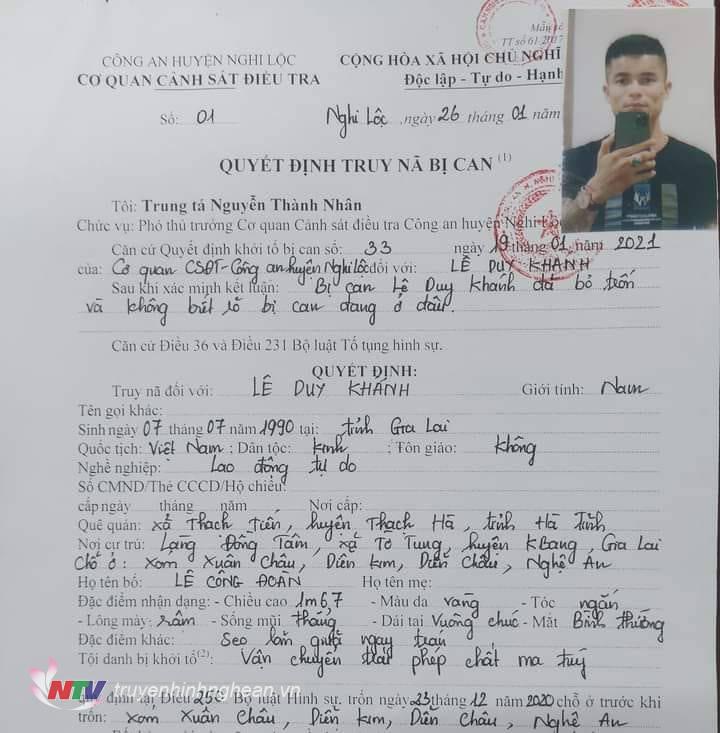 Mẫu số
TT số 61/2017
CÔNG AN HUYỆN NGHI LỘC
CƠ QUAN CẢNH SÁT ĐIỀU TRA
CỘNG HÒA XÃ HỘI CHỦ NGHĨ
Độc lập - Tự do - Hạnh
Số: 01
Nghi Lộc, ngày 26 tháng 01 năm
QUYẾT ĐỊNH TRUY NÃ BỊ CAN (1)
Tôi: Trung tá Nguyễn Thành Nhân
Chức vụ: Phó thủ trưởng Cơ quan Cảnh sát điều tra Công an huyện Nghi Lộc
Căn cứ Quyết định khởi tố bị can số: 33 ngày 19 tháng 01 năm 2021
của: Cơ quan CSĐT-Công an huyện Nghi Lộc đối với: LÊ DUY KHÁNH
Sau khi xác minh kết luận: Bị can Lê Duy Khánh đã bỏ trốn
và không biết rõ bị can đang ở đâu.
Căn cứ Điều 36 và Điều 231 Bộ luật Tố tụng hình sự.
QUYẾT ĐỊNH:
Truy nã đối với: LÊ DUY KHÁNH Giới tính: Nam
Tên gọi khác:
Sinh ngày 07 tháng 07 năm 1990 tại: tỉnh Gia Lai
Quốc tịch: Việt Nam; Dân tộc: Kinh; Tôn giáo: Không
Nghề nghiệp: Lao động tự do
Số CMND/Thẻ CCCD/Hộ chiếu:
cấp ngày tháng năm Nơi cấp:
Quê quán: xã Thạch Tiến, huyện Thạch Hà, tỉnh Hà Tĩnh
Nơi cư trú: Làng Đồng Tâm, xã Tơ Tung, huyện KBang, Gia Lai
Chỗ ở: Xóm Xuân Châu, Diễn Kim, Diễn Châu, Nghệ An
Họ tên bố: LÊ CÔNG ĐOÀN Họ tên mẹ:
Đặc điểm nhận dạng: - Chiều cao 1m67 - Màu da vàng - Tóc ngắn
- Lông mày: rậm - Sống mũi thẳng - Dái tai Vuông chúc - Mắt Bình thường
Đặc điểm khác: Sẹo lằn giữa ngay trán
Tội danh bị khởi tố(2): Vận chuyển trái phép chất ma túy
NTV truyenhinhnghean.vn
quy định tại Điều 250 Bộ luật Hình sự, trốn ngày 23 tháng 12 năm 2020 chỗ ở trước khi
trốn: Xóm Xuân Châu, Diễn Kim, Diễn Châu, Nghệ An